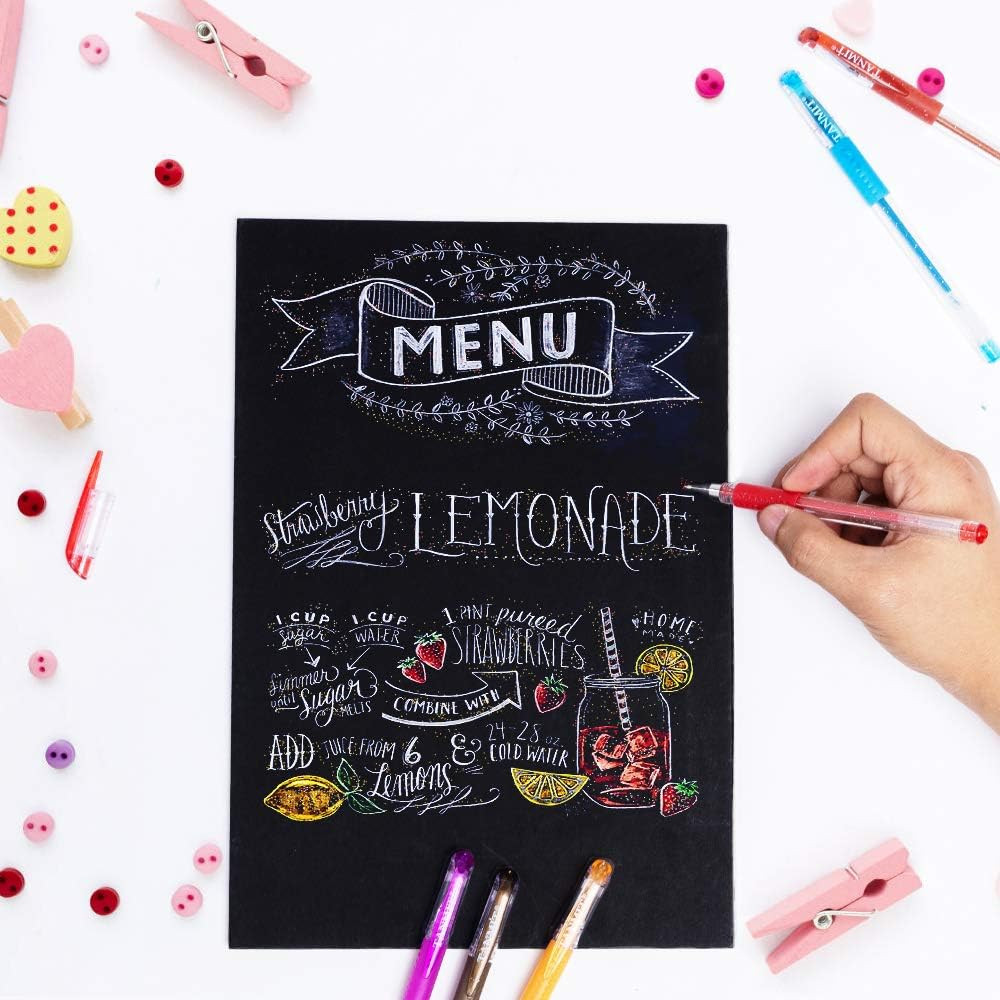 TANMIT®
TANMIT®
MENU
Strawberry LEMONADE
1 CUP sugar
1 CUP WATER
1 PINT pureed STRAWBERRIES
HOME MADE
Simmer until Sugar MELTS
COMBINE WITH
ADD JUICE FROM 6 Lemons
& 24-28 oz COLD WATER
TANMIT
TANMIT
TANMIT